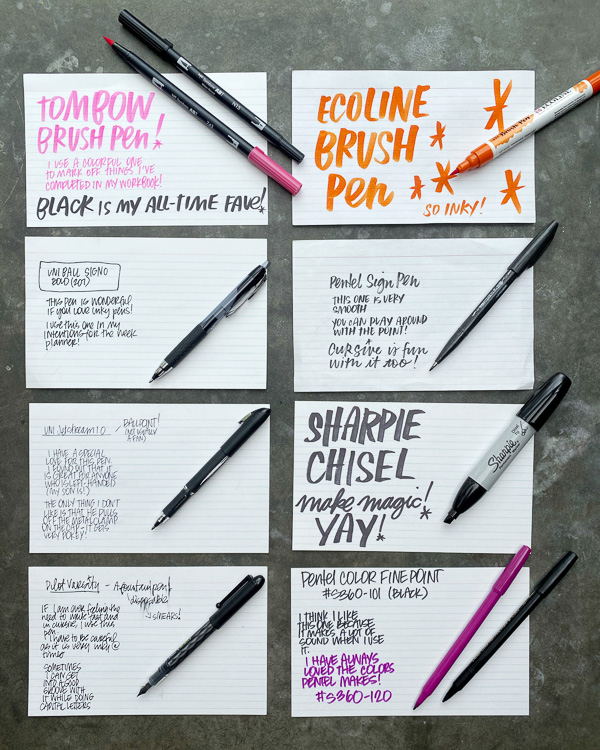 TOMBOW
BRUSH PEN!
I USE A COLORFUL ONE
TO MARK OFF THINGS I'VE
COMPLETED IN MY WORKBOOK!
BLACK IS MY ALL-TIME FAVE!
ECOLINE
BRUSH
PEN
SO INKY!
UNI BALL SIGNO
207
THIS PEN IS WONDERFUL
IF YOU LOVE INKY PENS!
I USE THIS ONE IN MY
INTENTIONS FOR THE WEEK
PLANNER!
Pentel Sign Pen
THIS ONE IS VERY
SMOOTH
YOU CAN PLAY AROUND
WITH THE POINT!
Cursive is fun
with it too!
UNI Jetstream
BALLPOINT!
I HAVE A SPECIAL
LOVE FOR THIS PEN.
I FOUND OUT THAT IT
IS GREAT FOR ANYONE
WHO IS LEFT-HANDED
(MY SON IS!)
THE ONLY THING I DON'T
LIKE IS THAT HE PULLS
OFF THE METAL CLAMP
ON THE CAP & IT GETS
VERY POKEY!
SHARPIE
CHISEL
make magic!
YAY!
Sharpie
Pilot Varsity - A fountain pen!
disposable
IF I am ever feeling the
need to write fast and
in cursive, I use this
pen.
I have to be careful
as it is very inky @
times
SOMETIMES
I CAN GET
INTO A GOOD
GROOVE WITH
IT WHILE DOING
CAPITAL LETTERS
Pentel COLOR FINE POINT
#S360-101 (BLACK)
I THINK I LIKE
THIS ONE BECAUSE
IT MAKES A LOT OF
SOUND WHEN I USE
IT.
I HAVE ALWAYS
LOVED THE COLORS
PENTEL MAKES!
#S360-120